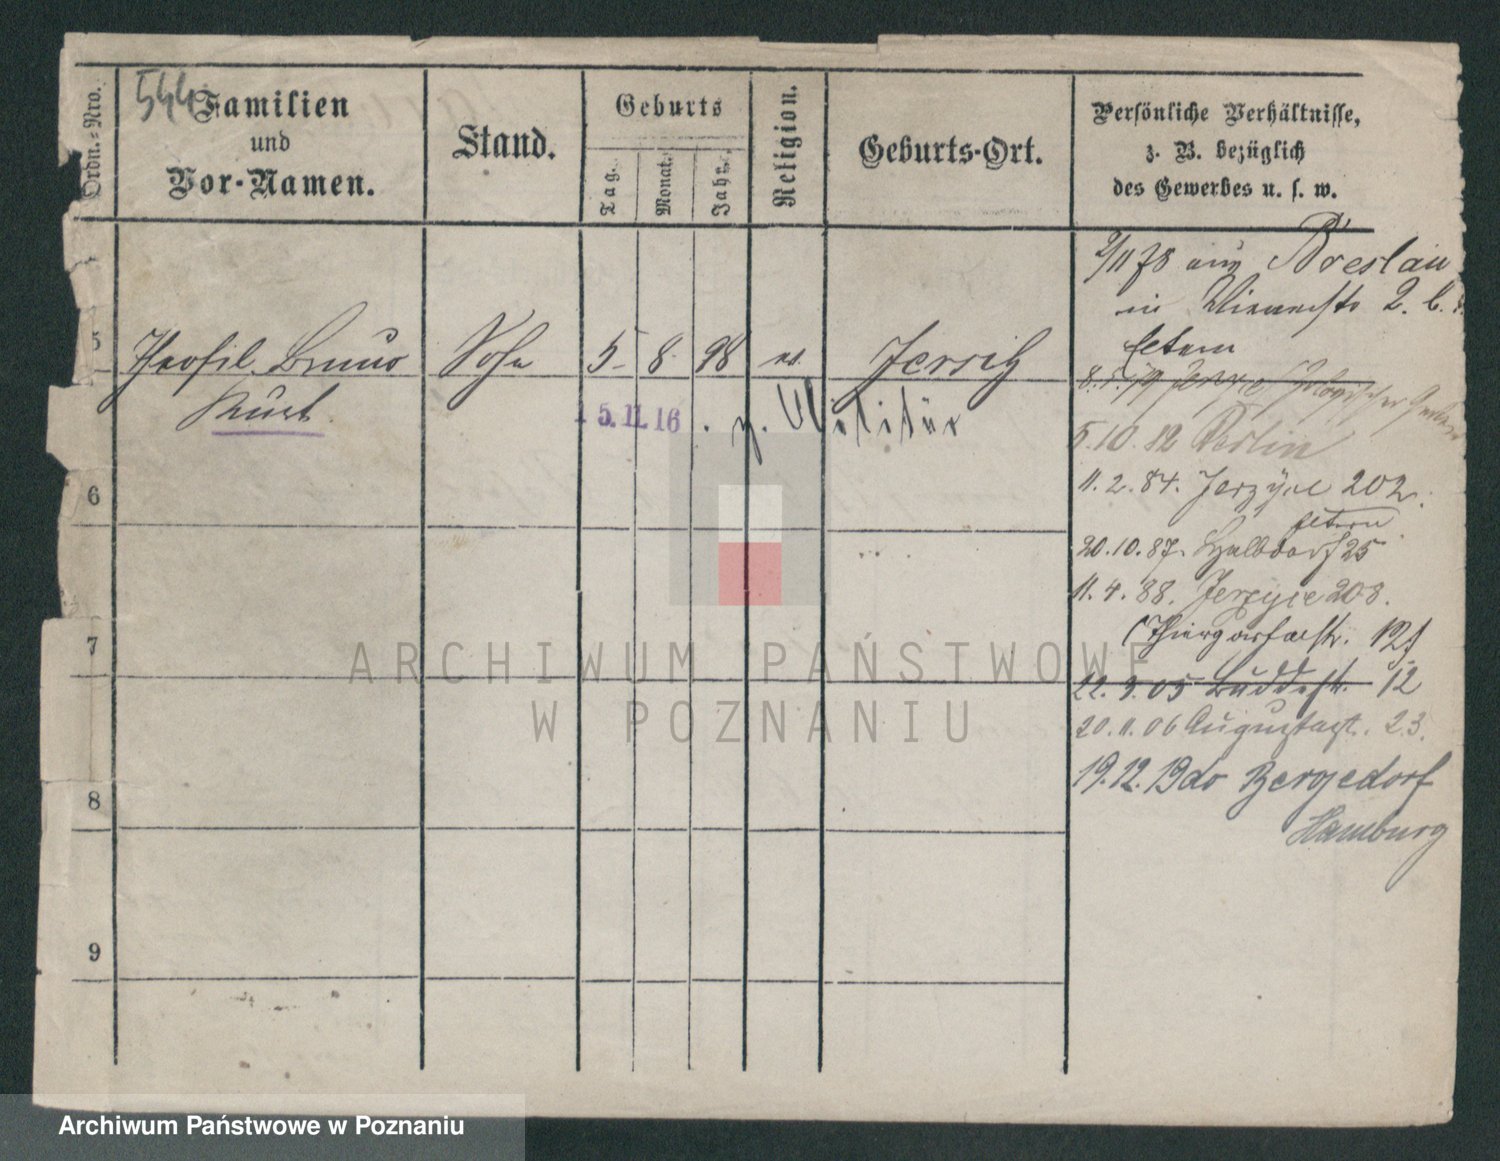 544
Ordn.-Nro.
Familien
und
Vor-Namen.
Stand.
Geburts
Tag.
Monat.
Jahr.
Religion.
Geburts-Ort.
Persönliche Verhältnisse,
z. B. bezüglich
des Gewerbes u. s. w.
2/11 78 aus Breslau
in 2. b.
5
Theofil Bruno Sohn 5 8 98 ev. Jersitz
Kurt
15.11.16 z. Militär
Eltern
5.10.82 Berlin
6
11.2.84. Jerzyce 202.
Eltern
20.10.87. 25
11.4.88. Jerzyce 208.
7
(Thiergartenstr. 12)
22.3.05 Buddestr. 12
20.11.06 Augustast. 23.
19.12.19 do Bergedorf
Hamburg
8
9
ARCHIWUM PAŃSTWOWE
W POZNANIU
Archiwum Państwowe w Poznaniu